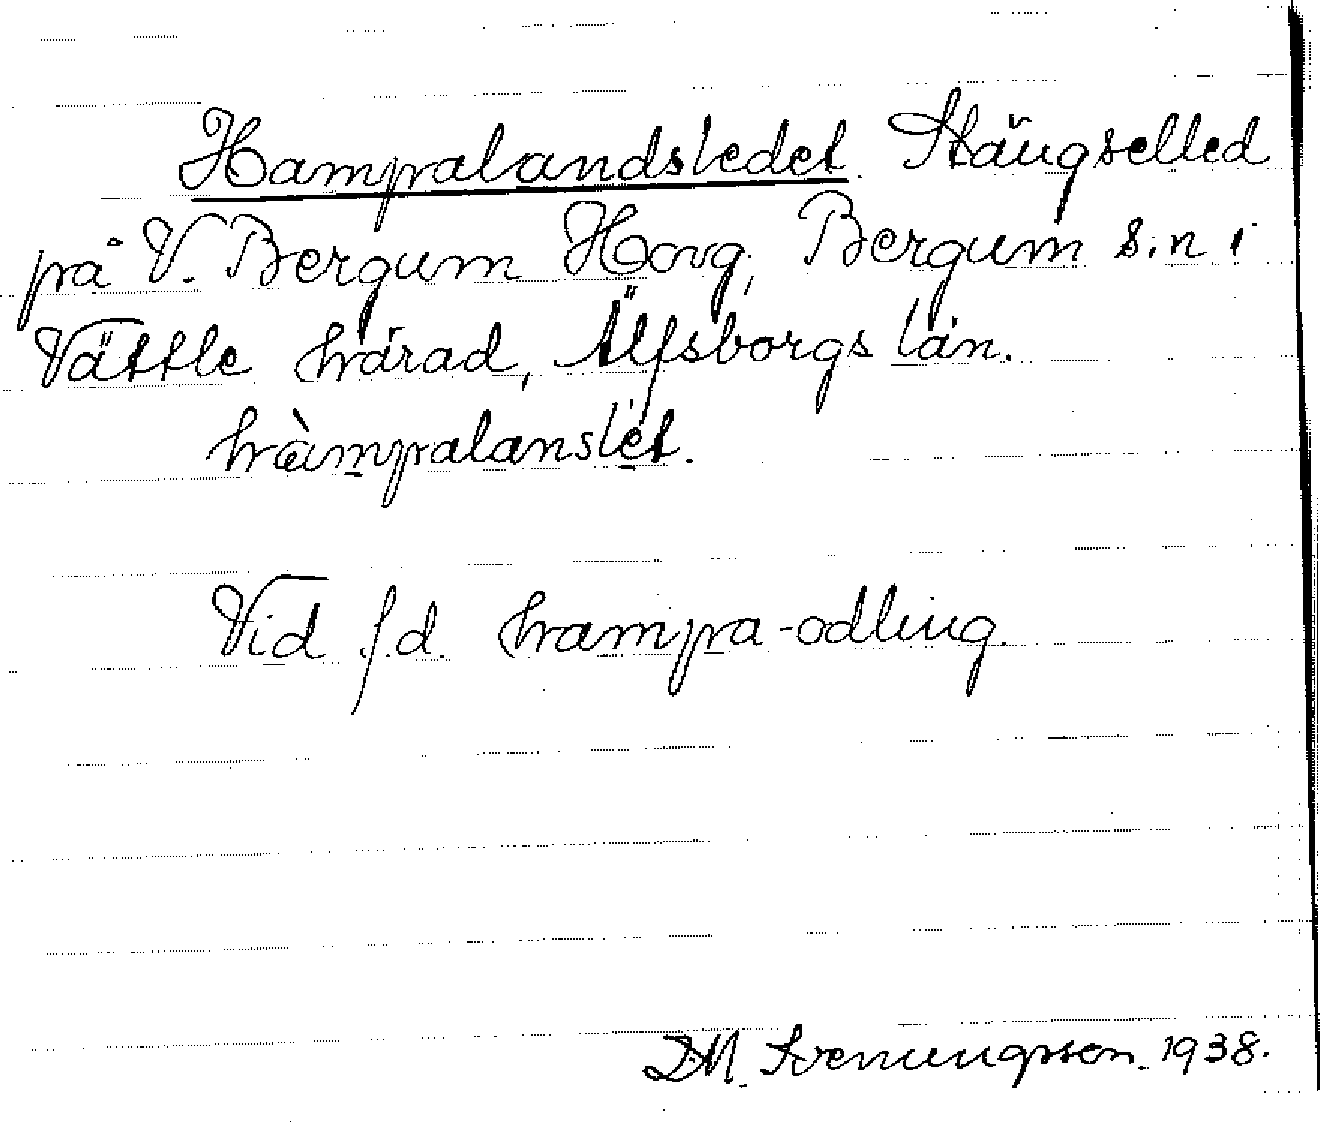 Hampalandsledet. Stängselled
på V. Bergum Hovg, Bergum s:n i
Vättle härad, Älfsborgs län.
hàmpalanslét.
Vid f.d. hampa-odling.
D.M. 1938.